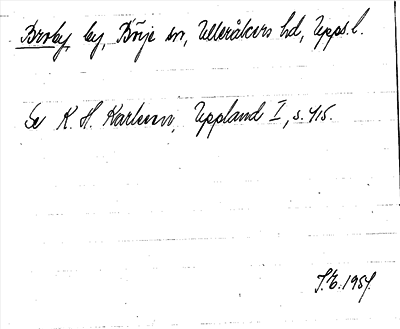 Broby by, Börje sn, Ulleråkers hd, Upps. l.
Se K. H. Karlsson, Uppland I, s. 415.
S.E. 1957.